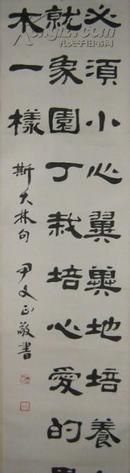 必須小心翼翼地培養人
就象園丁栽培心愛的果
木一樣
斯大林句 尹文正敬書